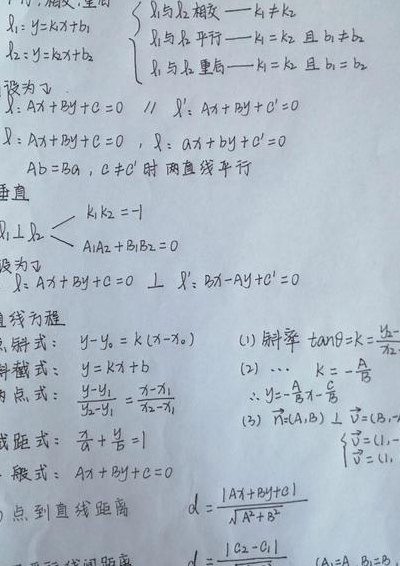 相交,重合
l₁: y=k₁x+b₁
l₂: y=k₂x+b₂
l₁与l₂ 相交 — k₁≠k₂
l₁与l₂ 平行 — k₁=k₂ 且 b₁≠b₂
l₁与l₂ 重合 — k₁=k₂ 且 b₁=b₂
设为
l: Ax+By+C=0 // l': Ax+By+C'=0
l: Ax+By+C=0 , l: ax+by+c'=0
Ab=Ba, C≠C' 时 两直线平行
垂直
l₁⊥l₂
k₁k₂=-1
A₁A₂+B₁B₂=0
设为
l: Ax+By+C=0 ⊥ l': Bx-Ay+C'=0
直线方程
点斜式: y-y₀=k(x-x₀)
斜截式: y=kx+b
两点式: (y-y₁)/(y₂-y₁) = (x-x₁)/(x₂-x₁)
截距式: x/a + y/b = 1
一般式: Ax+By+C=0
(1) 斜率 tanθ=k=
(2) ⋯ k=-A/B
∴ y=-A/B x-C/B
(3) n⃗=(A,B) ⊥ v⃗=(B,-
v⃗=(1,-
v⃗=(1,
点到直线距离 d=|Ax+By+C|/√(A²+B²)
线间距离 d=|C₂-C₁|
(A₁=A₂ B₁=B₂